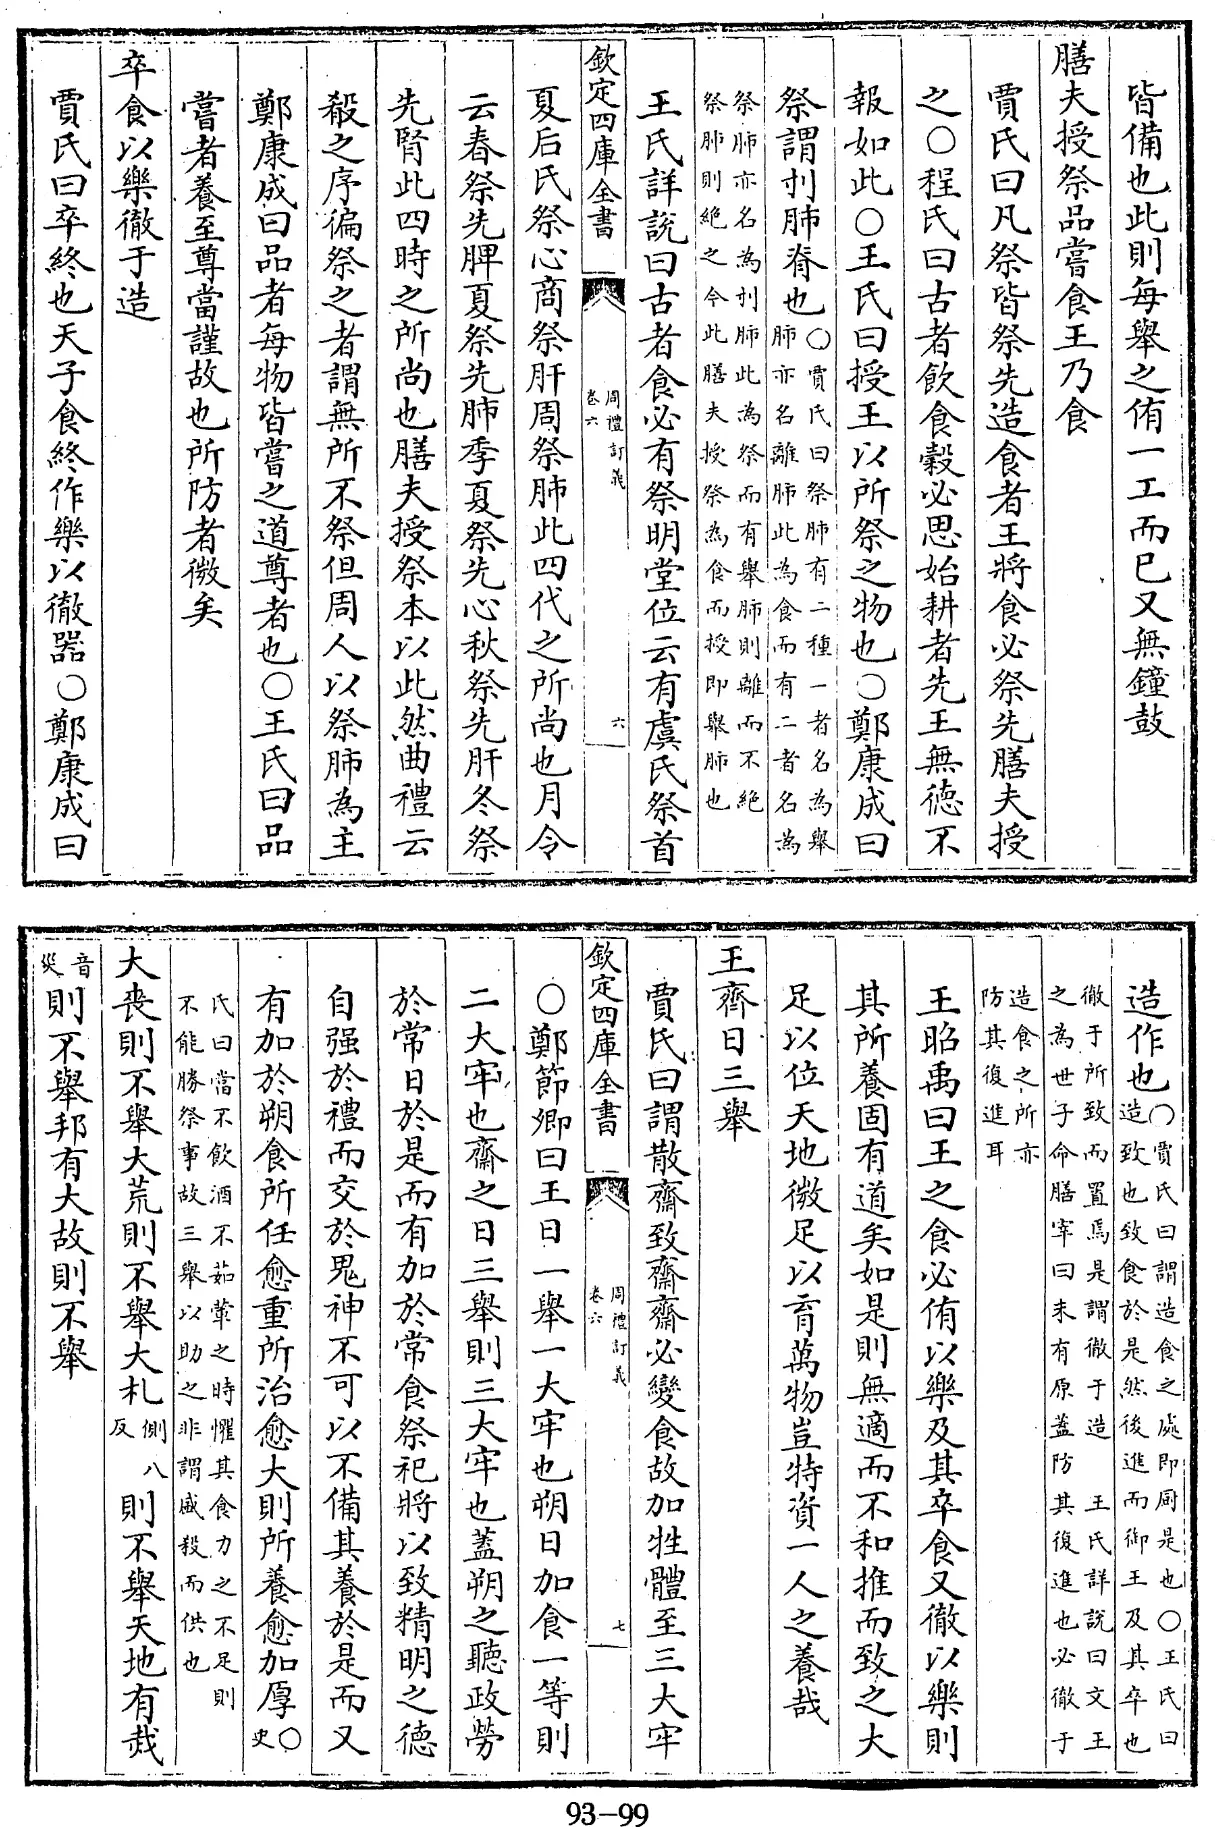 皆備也此則每舉之侑一工而已又無鐘鼓
膳夫授祭品嘗食王乃食
賈氏曰凡祭皆祭先造食者王將食必祭先膳夫授
之〇程氏曰古者飲食糓必思始耕者先王無德不
報如此〇王氏曰授王以所祭之物也〇鄭康成曰
祭謂刌肺脊也
〇賈氏曰祭肺有二種一者名為舉
肺亦名離肺此為食而有二者名為
祭肺亦名為刌肺此為祭而有舉肺則離而不絶
祭肺則絶之今此膳夫授祭為食而授即舉肺也
王氏詳說曰古者食必有祭明堂位云有虞氏祭首
欽定四庫全書
周禮訂義
卷六
六
夏后氏祭心商祭肝周祭肺此四代之所尚也月令
云春祭先脾夏祭先肺季夏祭先心秋祭先肝冬祭
先腎此四時之所尚也膳夫授祭本以此然曲禮云
殽之序徧祭之者謂無所不祭但周人以祭肺為主
鄭康成曰品者每物皆嘗之道尊者也〇王氏曰品
嘗者養至尊當謹故也所防者微矣
卒食以樂徹于造
賈氏曰卒終也天子食終作樂以徹器〇鄭康成曰
造作也
〇賈氏曰謂造食之處即厨是也〇王氏曰
造致也致食於是然後進而御王及其卒也
徹于所致而置焉是謂徹于造 王氏詳說曰文王
之為世子命膳宰曰末有原蓋防其復進也必徹于
造食之所亦
防其復進耳
王昭禹曰王之食必侑以樂及其卒食又徹以樂則
其所養固有道矣如是則無適而不和推而致之大
足以位天地微足以育萬物豈特資一人之養哉
王齊日三舉
賈氏曰謂散齋致齋齋必變食故加牲體至三大牢
欽定四庫全書
周禮訂義
卷六
七
〇鄭節卿曰王日一舉一大牢也朔日加食一等則
二大牢也齋之日三舉則三大牢也蓋朔之聽政勞
於常日於是而有加於常食祭祀將以致精明之德
自强於禮而交於鬼神不可以不備其養於是而又
有加於朔食所任愈重所治愈大則所養愈加厚
〇史
氏曰當不飲酒不茹葷之時懼其食力之不足則
不能勝祭事故三舉以助之非謂盛殺而供也
大喪則不舉大荒則不舉大札
側八
反
則不舉天地有烖
音
災
則不舉邦有大故則不舉
93-99